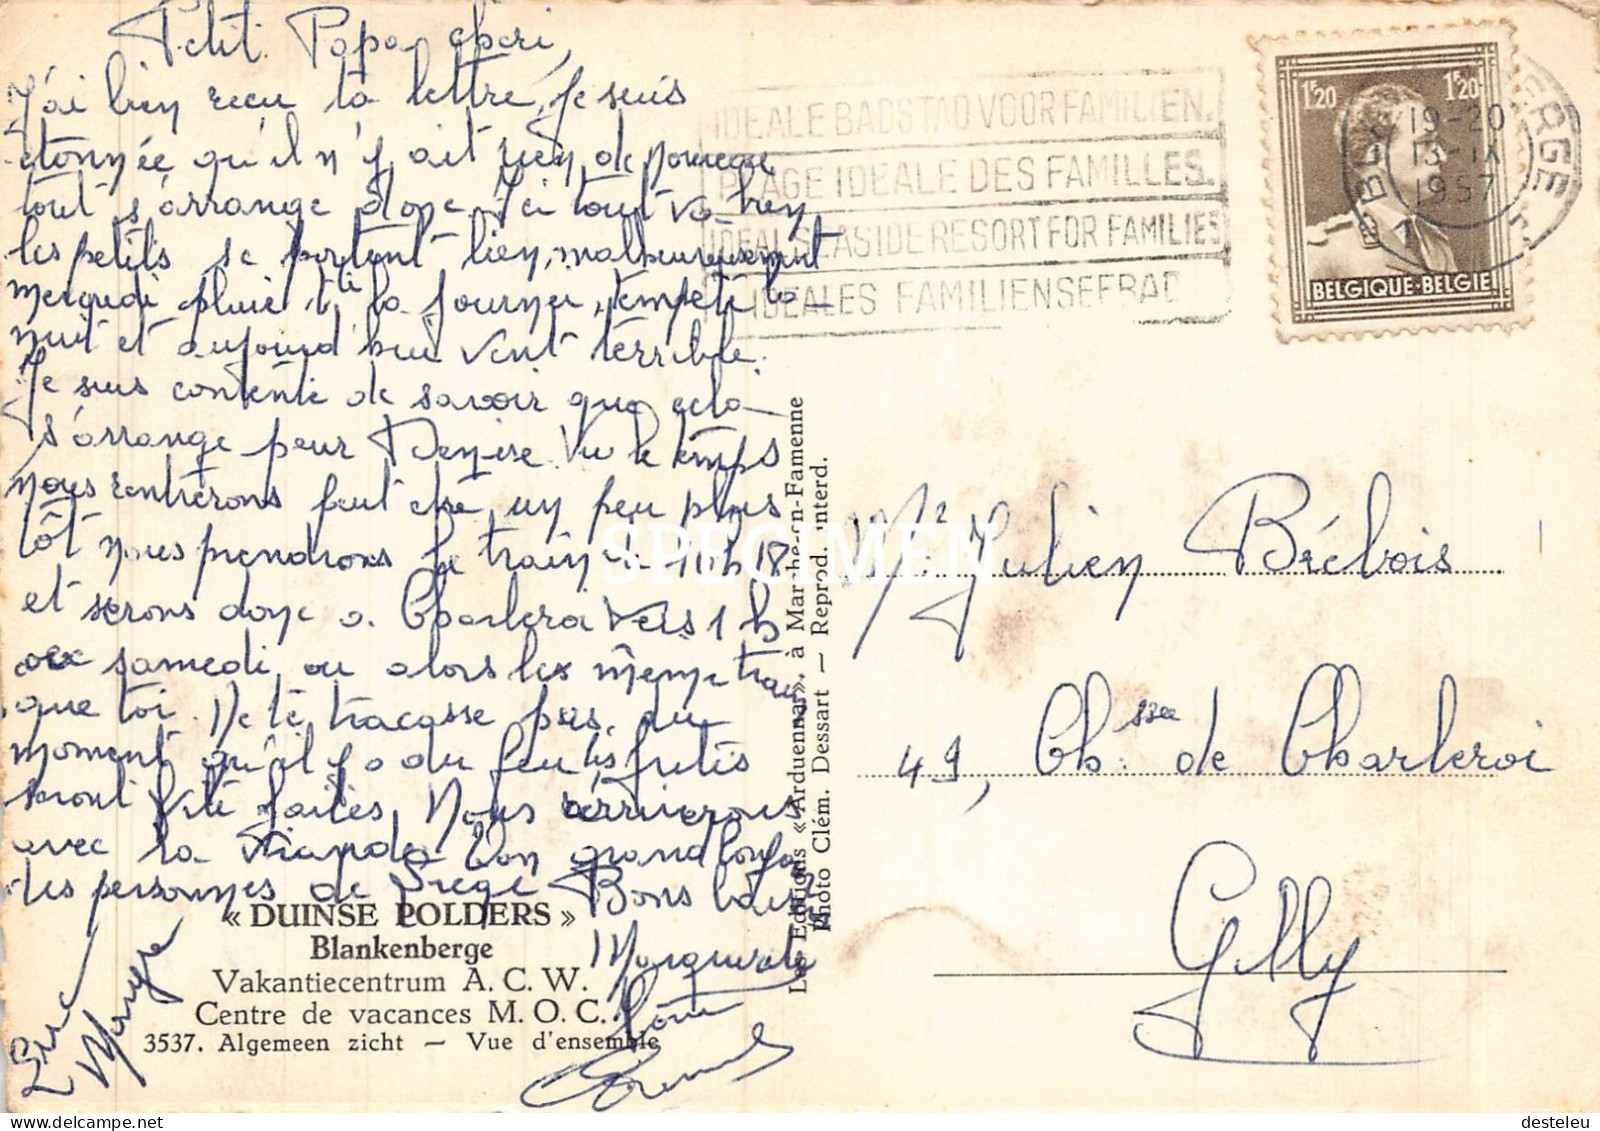 Petit Papa chéri,
J'ai bien reçu ta lettre, je suis
étonnée qu'il n'y ait rien de nouveau
tout s'arrange donc. Ici tout va bien
les petits se portent bien, malheureusement
mercredi pluie tte la journée, tempête la
nuit et aujourd'hui vent terrible.
Je suis contente de savoir que cela
s'arrange pour Denise. Vu le temps
nous rentrerons peut être un peu plus
tôt nous prendrons le train 10h18
et serons donc à Charleroi vers 1 h
samedi, ou alors le même train
que toi. Ne te tracasse pas, du
moment qu'il y a du feu les frites
seront vite faites. Nous arriverons
avec la viande. Bon grand
des personnes de Liège Bons baisers
Marguerite
« DUINSE POLDERS »
Blankenberge
Vakantiecentrum A. C. W.
Centre de vacances M. O. C.
3537. Algemeen zicht — Vue d'ensemble
Les Editions « Arduenna », à Marche-en-Famenne
Photo Clém. Dessart — Reprod. interd.
SPECIMEN
IDEALE BADSTAD VOOR FAMILIEN.
PLAGE IDEALE DES FAMILLES.
IDEAL SEASIDE RESORT FOR FAMILIES
IDEALES FAMILIENSEEBAD
1F20 1F20
BELGIQUE·BELGIE
19-20
13-IX
1957
Mr Julien Brébois
49, Chssée de Charleroi
Gilly
desteleu